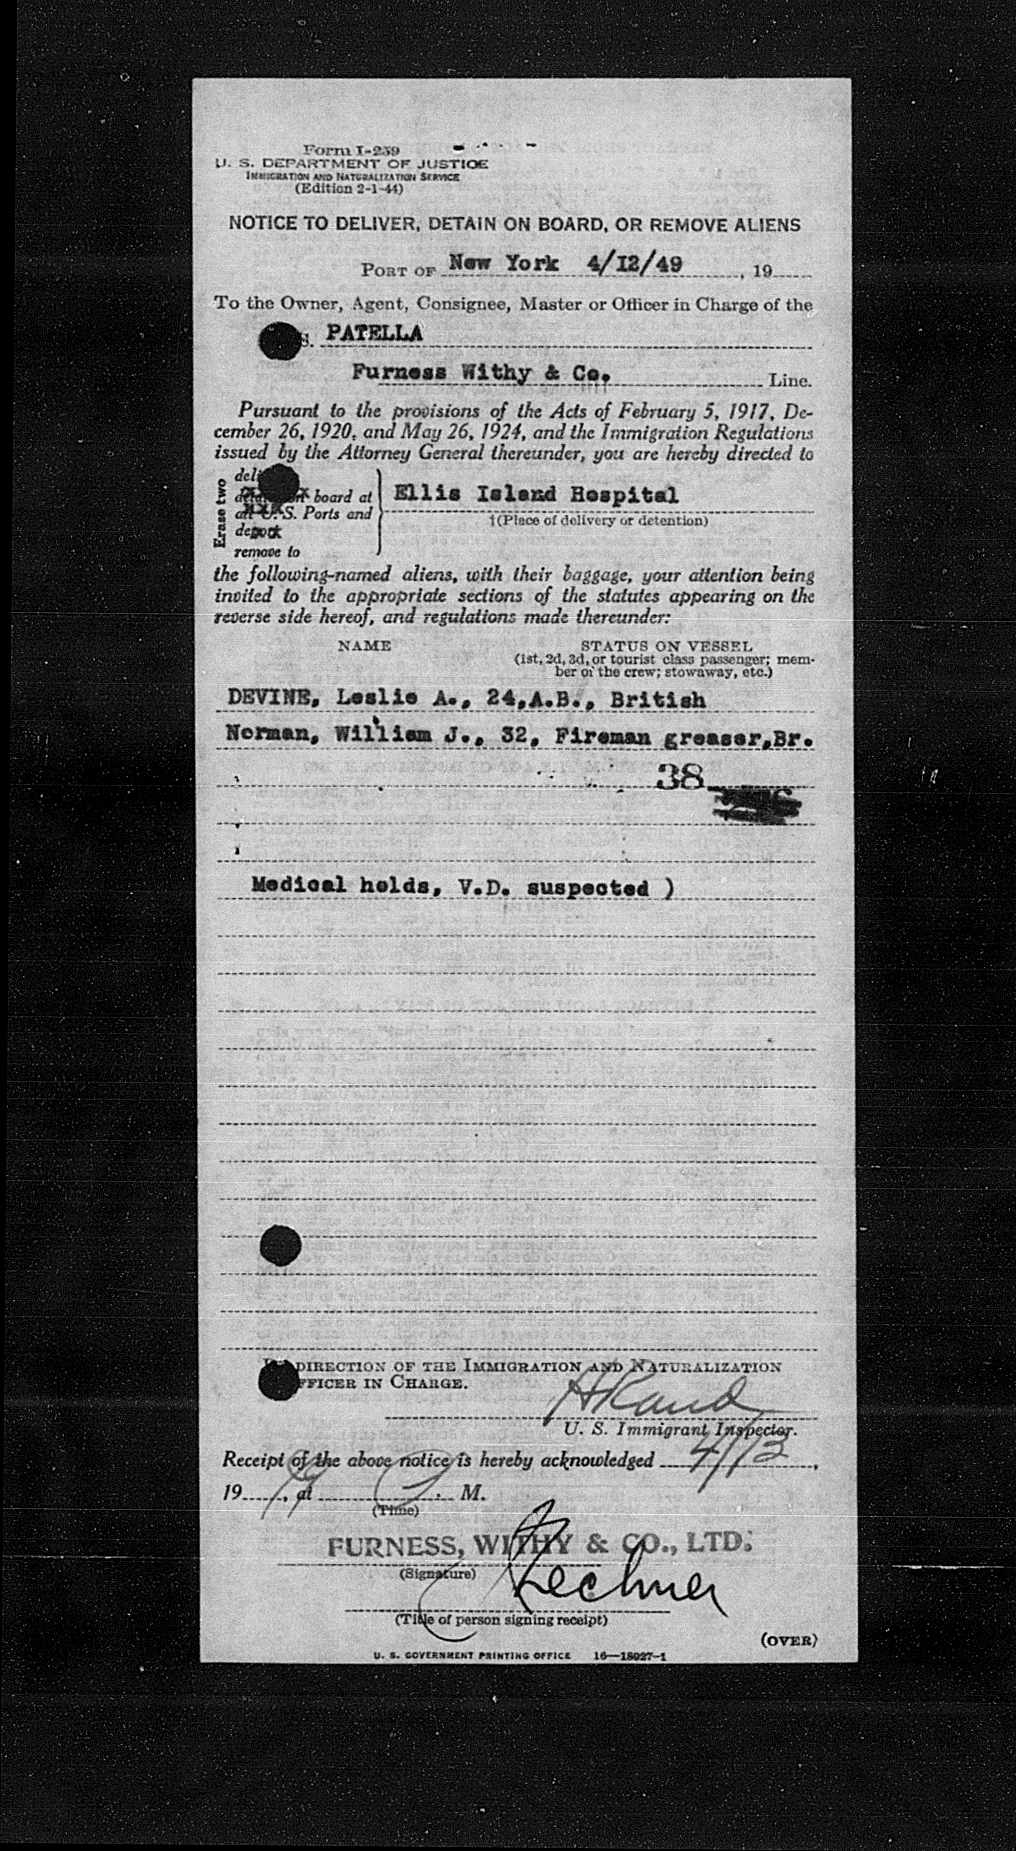 Form I-259
U. S. DEPARTMENT OF JUSTICE
IMMIGRATION AND NATURALIZATION SERVICE
(Edition 2-1-44)
NOTICE TO DELIVER, DETAIN ON BOARD, OR REMOVE ALIENS
PORT OF New York 4/12/49, 19
To the Owner, Agent, Consignee, Master or Officer in Charge of the
S. PATELLA
Furness Withy & Co. Line.
Pursuant to the provisions of the Acts of February 5, 1917, De-
cember 26, 1920, and May 26, 1924, and the Immigration Regulations
issued by the Attorney General thereunder, you are hereby directed to
Erase two
deli
board at
all U.S. Ports and
deport
remove to
Ellis Island Hospital
†(Place of delivery or detention)
the following-named aliens, with their baggage, your attention being
invited to the appropriate sections of the statutes appearing on the
reverse side hereof, and regulations made thereunder:
NAME STATUS ON VESSEL
(1st, 2d, 3d, or tourist class passenger; mem-
ber of the crew; stowaway, etc.)
DEVINE, Leslie A., 24,A.B., British
Norman, William J., 32, Fireman greaser,Br.
38
Medical holds, V.D. suspected )
DIRECTION OF THE IMMIGRATION AND NATURALIZATION
FFICER IN CHARGE.
U. S. Immigrant Inspector.
Receipt of the above notice is hereby acknowledged 4/13,
19 , at . M.
(Time)
FURNESS, WITHY & CO., LTD.
(Signature)
(Title of person signing receipt)
(OVER)
U. S. GOVERNMENT PRINTING OFFICE 16—18027-1